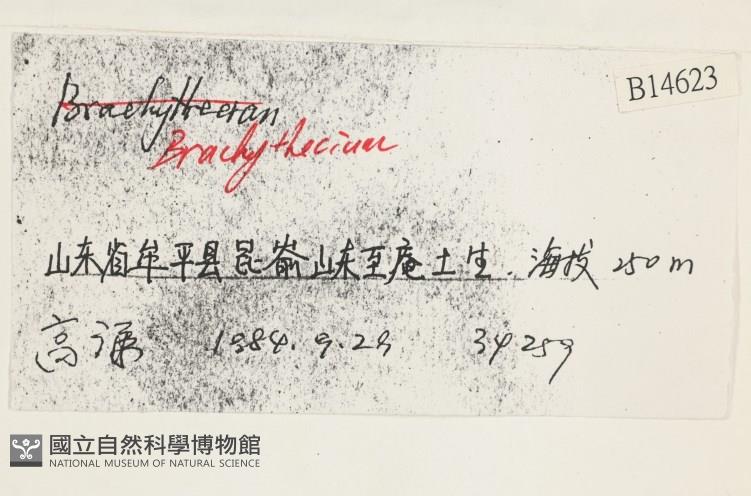 B14623
Brachytheeran
Brachythecium
山东省牟平县昆嵛山东至庵土生. 海拔 250 m
高谦 1984.9.29 34259
國立自然科學博物館
NATIONAL MUSEUM OF NATURAL SCIENCE